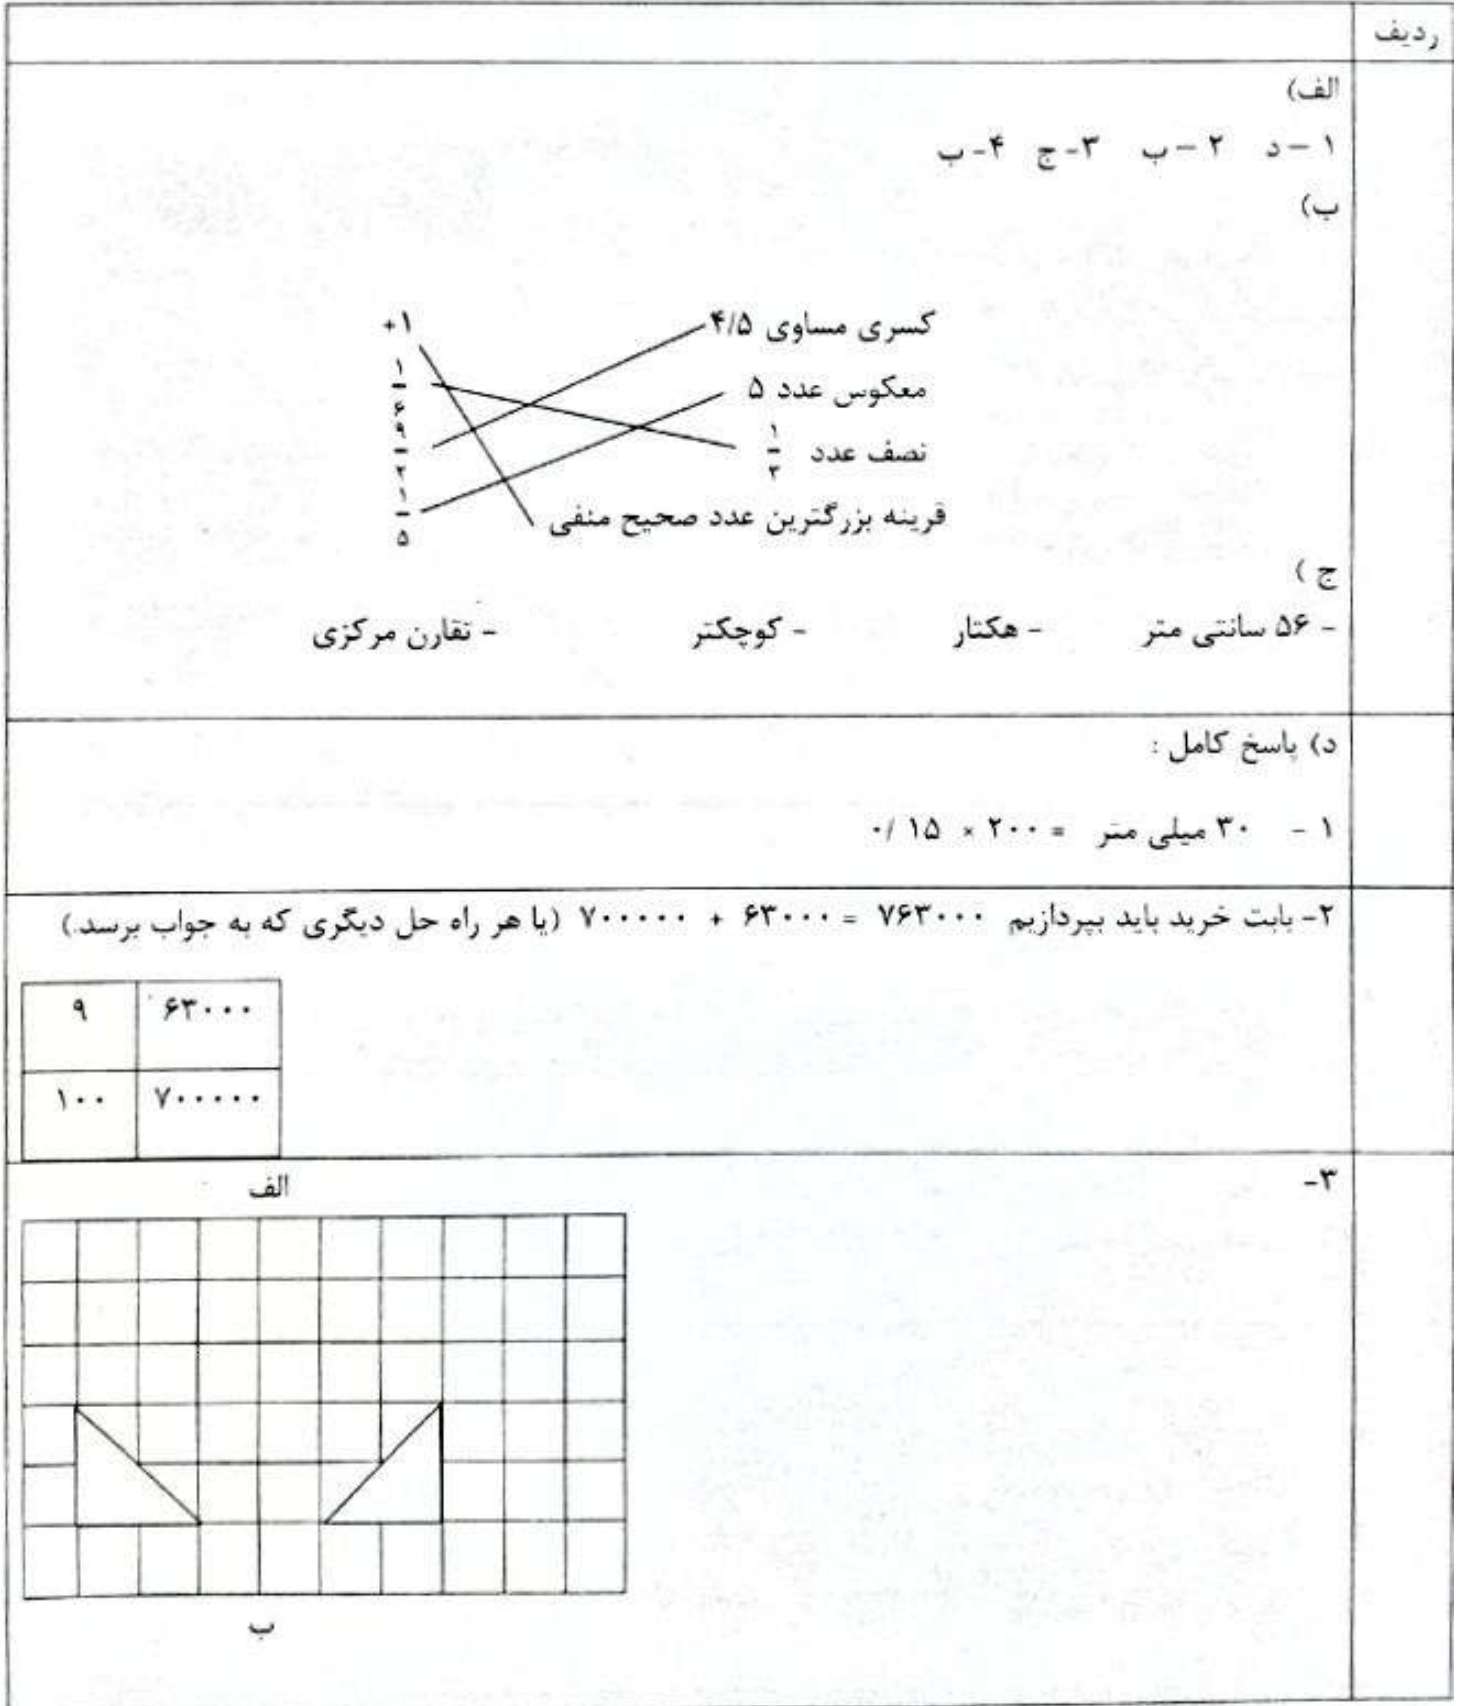 ردیف
الف)
۱ – د   ۲ – ب   ۳- ج   ۴- ب
ب)
کسری مساوی ۴/۵   +۱
معکوس عدد ۵   ۱/۶
نصف عدد ۱/۳   ۹/۲
قرینه بزرگترین عدد صحیح منفی   ۱/۵
ج )
- ۵۶ سانتی متر   - هکتار   - کوچکتر   - تقارن مرکزی
د) پاسخ کامل :
۱ -   ۳۰ میلی متر = ۲۰۰ × ۰/۱۵
۲- بابت خرید باید بپردازیم ۷۶۳۰۰۰ = ۶۳۰۰۰ + ۷۰۰۰۰۰ (یا هر راه حل دیگری که به جواب برسد.)
۹   ۶۳۰۰۰
۱۰۰   ۷۰۰۰۰۰
۳-
الف
ب